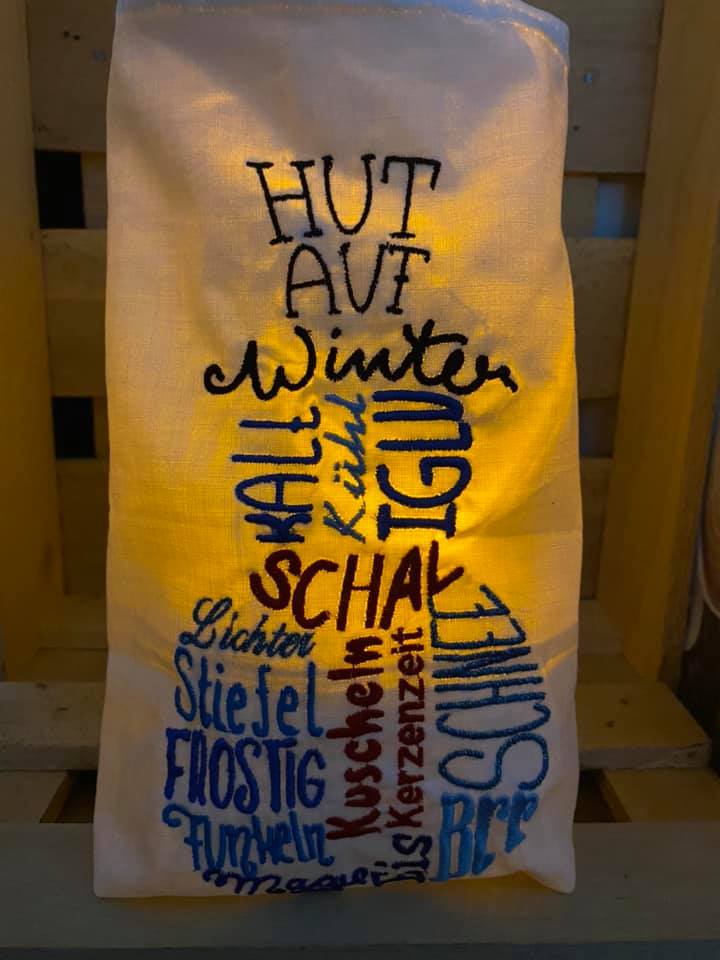 HUT
AUF
Winter
KALT
Kühl
IGLU
SCHAL
Lichter
Stiefel
FROSTIG
Funkeln
Kuscheln
Kerzenzeit
SCHNEE
Eis
Brr